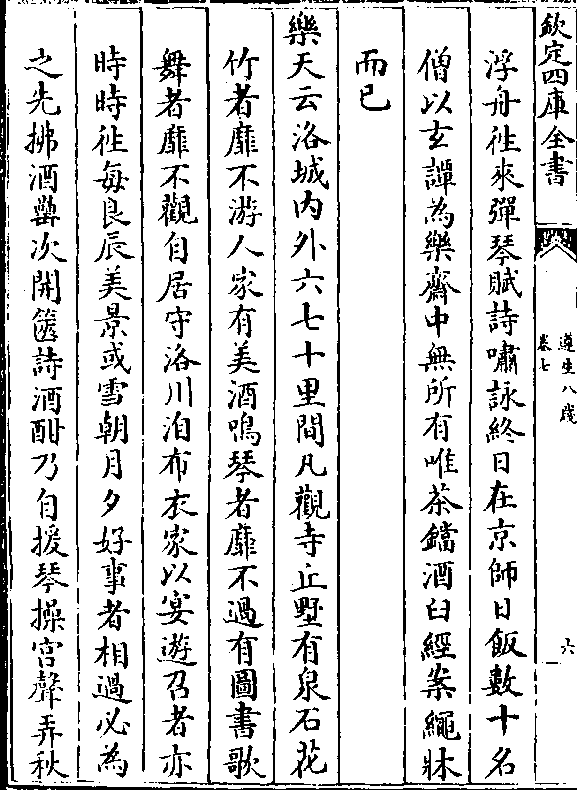 欽定四庫全書
遵生八牋
卷七
六
浮舟徃來彈琴賦詩嘯詠終日在京師日飯數十名
僧以玄譚為樂齋中無所有唯茶鐺酒臼經案繩牀
而已
樂天云洛城内外六七十里間凡觀寺丘墅有泉石花
竹者靡不游人家有美酒鳴琴者靡不過有圖書歌
舞者靡不觀自居守洛川洎布衣家以宴遊召者亦
時時徃每良辰美景或雪朝月夕好事者相過必為
之先拂酒罍次開篋詩酒酣乃自援琴操宫聲弄秋